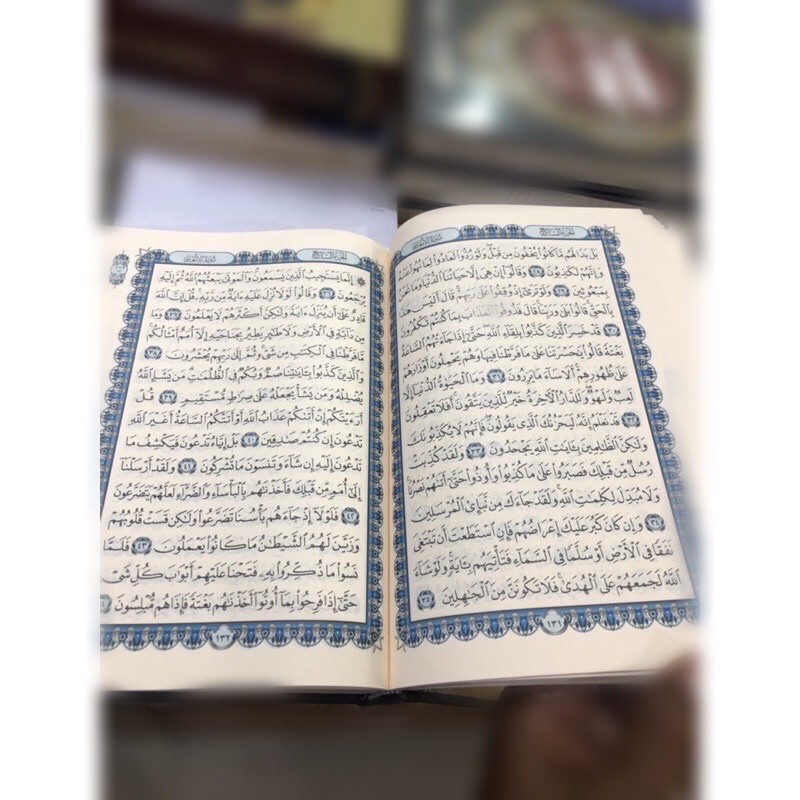 سورة الأنعام
الجزء السابع
بَلْ بَدَا لَهُم مَّا كَانُوا۟ يُخْفُونَ مِن قَبْلُ وَلَوْ رُدُّوا۟ لَعَادُوا۟ لِمَا نُهُوا۟ عَنْهُ
وَإِنَّهُمْ لَكَٰذِبُونَ ٢٨ وَقَالُوٓا۟ إِنْ هِىَ إِلَّا حَيَاتُنَا ٱلدُّنْيَا وَمَا نَحْنُ
بِمَبْعُوثِينَ ٢٩ وَلَوْ تَرَىٰٓ إِذْ وُقِفُوا۟ عَلَىٰ رَبِّهِمْ قَالَ أَلَيْسَ هَٰذَا
بِٱلْحَقِّ قَالُوا۟ بَلَىٰ وَرَبِّنَا قَالَ فَذُوقُوا۟ ٱلْعَذَابَ بِمَا كُنتُمْ تَكْفُرُونَ ٣٠
قَدْ خَسِرَ ٱلَّذِينَ كَذَّبُوا۟ بِلِقَآءِ ٱللَّهِ حَتَّىٰٓ إِذَا جَآءَتْهُمُ ٱلسَّاعَةُ
بَغْتَةً قَالُوا۟ يَٰحَسْرَتَنَا عَلَىٰ مَا فَرَّطْنَا فِيهَا وَهُمْ يَحْمِلُونَ أَوْزَارَهُمْ
عَلَىٰ ظُهُورِهِمْ أَلَا سَآءَ مَا يَزِرُونَ ٣١ وَمَا ٱلْحَيَوٰةُ ٱلدُّنْيَآ إِلَّا
لَعِبٌ وَلَهْوٌ وَلَلدَّارُ ٱلْءَاخِرَةُ خَيْرٌ لِّلَّذِينَ يَتَّقُونَ أَفَلَا تَعْقِلُونَ
٣٢ قَدْ نَعْلَمُ إِنَّهُۥ لَيَحْزُنُكَ ٱلَّذِى يَقُولُونَ فَإِنَّهُمْ لَا يُكَذِّبُونَكَ
وَلَٰكِنَّ ٱلظَّٰلِمِينَ بِـَٔايَٰتِ ٱللَّهِ يَجْحَدُونَ ٣٣ وَلَقَدْ كُذِّبَتْ
رُسُلٌ مِّن قَبْلِكَ فَصَبَرُوا۟ عَلَىٰ مَا كُذِّبُوا۟ وَأُوذُوا۟ حَتَّىٰٓ أَتَىٰهُمْ نَصْرُنَا
وَلَا مُبَدِّلَ لِكَلِمَٰتِ ٱللَّهِ وَلَقَدْ جَآءَكَ مِن نَّبَإِى۟ ٱلْمُرْسَلِينَ
٣٤ وَإِن كَانَ كَبُرَ عَلَيْكَ إِعْرَاضُهُمْ فَإِنِ ٱسْتَطَعْتَ أَن تَبْتَغِىَ
نَفَقًا فِى ٱلْأَرْضِ أَوْ سُلَّمًا فِى ٱلسَّمَآءِ فَتَأْتِيَهُم بِـَٔايَةٍ وَلَوْ شَآءَ
ٱللَّهُ لَجَمَعَهُمْ عَلَى ٱلْهُدَىٰ فَلَا تَكُونَنَّ مِنَ ٱلْجَٰهِلِينَ ٣٥
١٣١
الجزء السابع
سورة الأنعام
إِنَّمَا يَسْتَجِيبُ ٱلَّذِينَ يَسْمَعُونَ وَٱلْمَوْتَىٰ يَبْعَثُهُمُ ٱللَّهُ ثُمَّ إِلَيْهِ
يُرْجَعُونَ ٣٦ وَقَالُوا۟ لَوْلَا نُزِّلَ عَلَيْهِ ءَايَةٌ مِّن رَّبِّهِۦ قُلْ إِنَّ ٱللَّهَ
قَادِرٌ عَلَىٰٓ أَن يُنَزِّلَ ءَايَةً وَلَٰكِنَّ أَكْثَرَهُمْ لَا يَعْلَمُونَ ٣٧ وَمَا
مِن دَآبَّةٍ فِى ٱلْأَرْضِ وَلَا طَٰٓئِرٍ يَطِيرُ بِجَنَاحَيْهِ إِلَّآ أُمَمٌ أَمْثَالُكُم
مَّا فَرَّطْنَا فِى ٱلْكِتَٰبِ مِن شَىْءٍ ثُمَّ إِلَىٰ رَبِّهِمْ يُحْشَرُونَ ٣٨
وَٱلَّذِينَ كَذَّبُوا۟ بِـَٔايَٰتِنَا صُمٌّ وَبُكْمٌ فِى ٱلظُّلُمَٰتِ مَن يَشَإِ ٱللَّهُ
يُضْلِلْهُ وَمَن يَشَأْ يَجْعَلْهُ عَلَىٰ صِرَٰطٍ مُّسْتَقِيمٍ ٣٩ قُلْ
أَرَءَيْتَكُمْ إِنْ أَتَىٰكُمْ عَذَابُ ٱللَّهِ أَوْ أَتَتْكُمُ ٱلسَّاعَةُ أَغَيْرَ ٱللَّهِ
تَدْعُونَ إِن كُنتُمْ صَٰدِقِينَ ٤٠ بَلْ إِيَّاهُ تَدْعُونَ فَيَكْشِفُ مَا
تَدْعُونَ إِلَيْهِ إِن شَآءَ وَتَنسَوْنَ مَا تُشْرِكُونَ ٤١ وَلَقَدْ أَرْسَلْنَآ
إِلَىٰٓ أُمَمٍ مِّن قَبْلِكَ فَأَخَذْنَٰهُم بِٱلْبَأْسَآءِ وَٱلضَّرَّآءِ لَعَلَّهُمْ يَتَضَرَّعُونَ
٤٢ فَلَوْلَآ إِذْ جَآءَهُم بَأْسُنَا تَضَرَّعُوا۟ وَلَٰكِن قَسَتْ قُلُوبُهُمْ
وَزَيَّنَ لَهُمُ ٱلشَّيْطَٰنُ مَا كَانُوا۟ يَعْمَلُونَ ٤٣ فَلَمَّا
نَسُوا۟ مَا ذُكِّرُوا۟ بِهِۦ فَتَحْنَا عَلَيْهِمْ أَبْوَٰبَ كُلِّ شَىْءٍ
حَتَّىٰٓ إِذَا فَرِحُوا۟ بِمَآ أُوتُوٓا۟ أَخَذْنَٰهُم بَغْتَةً فَإِذَا هُم مُّبْلِسُونَ ٤٤
١٣٢